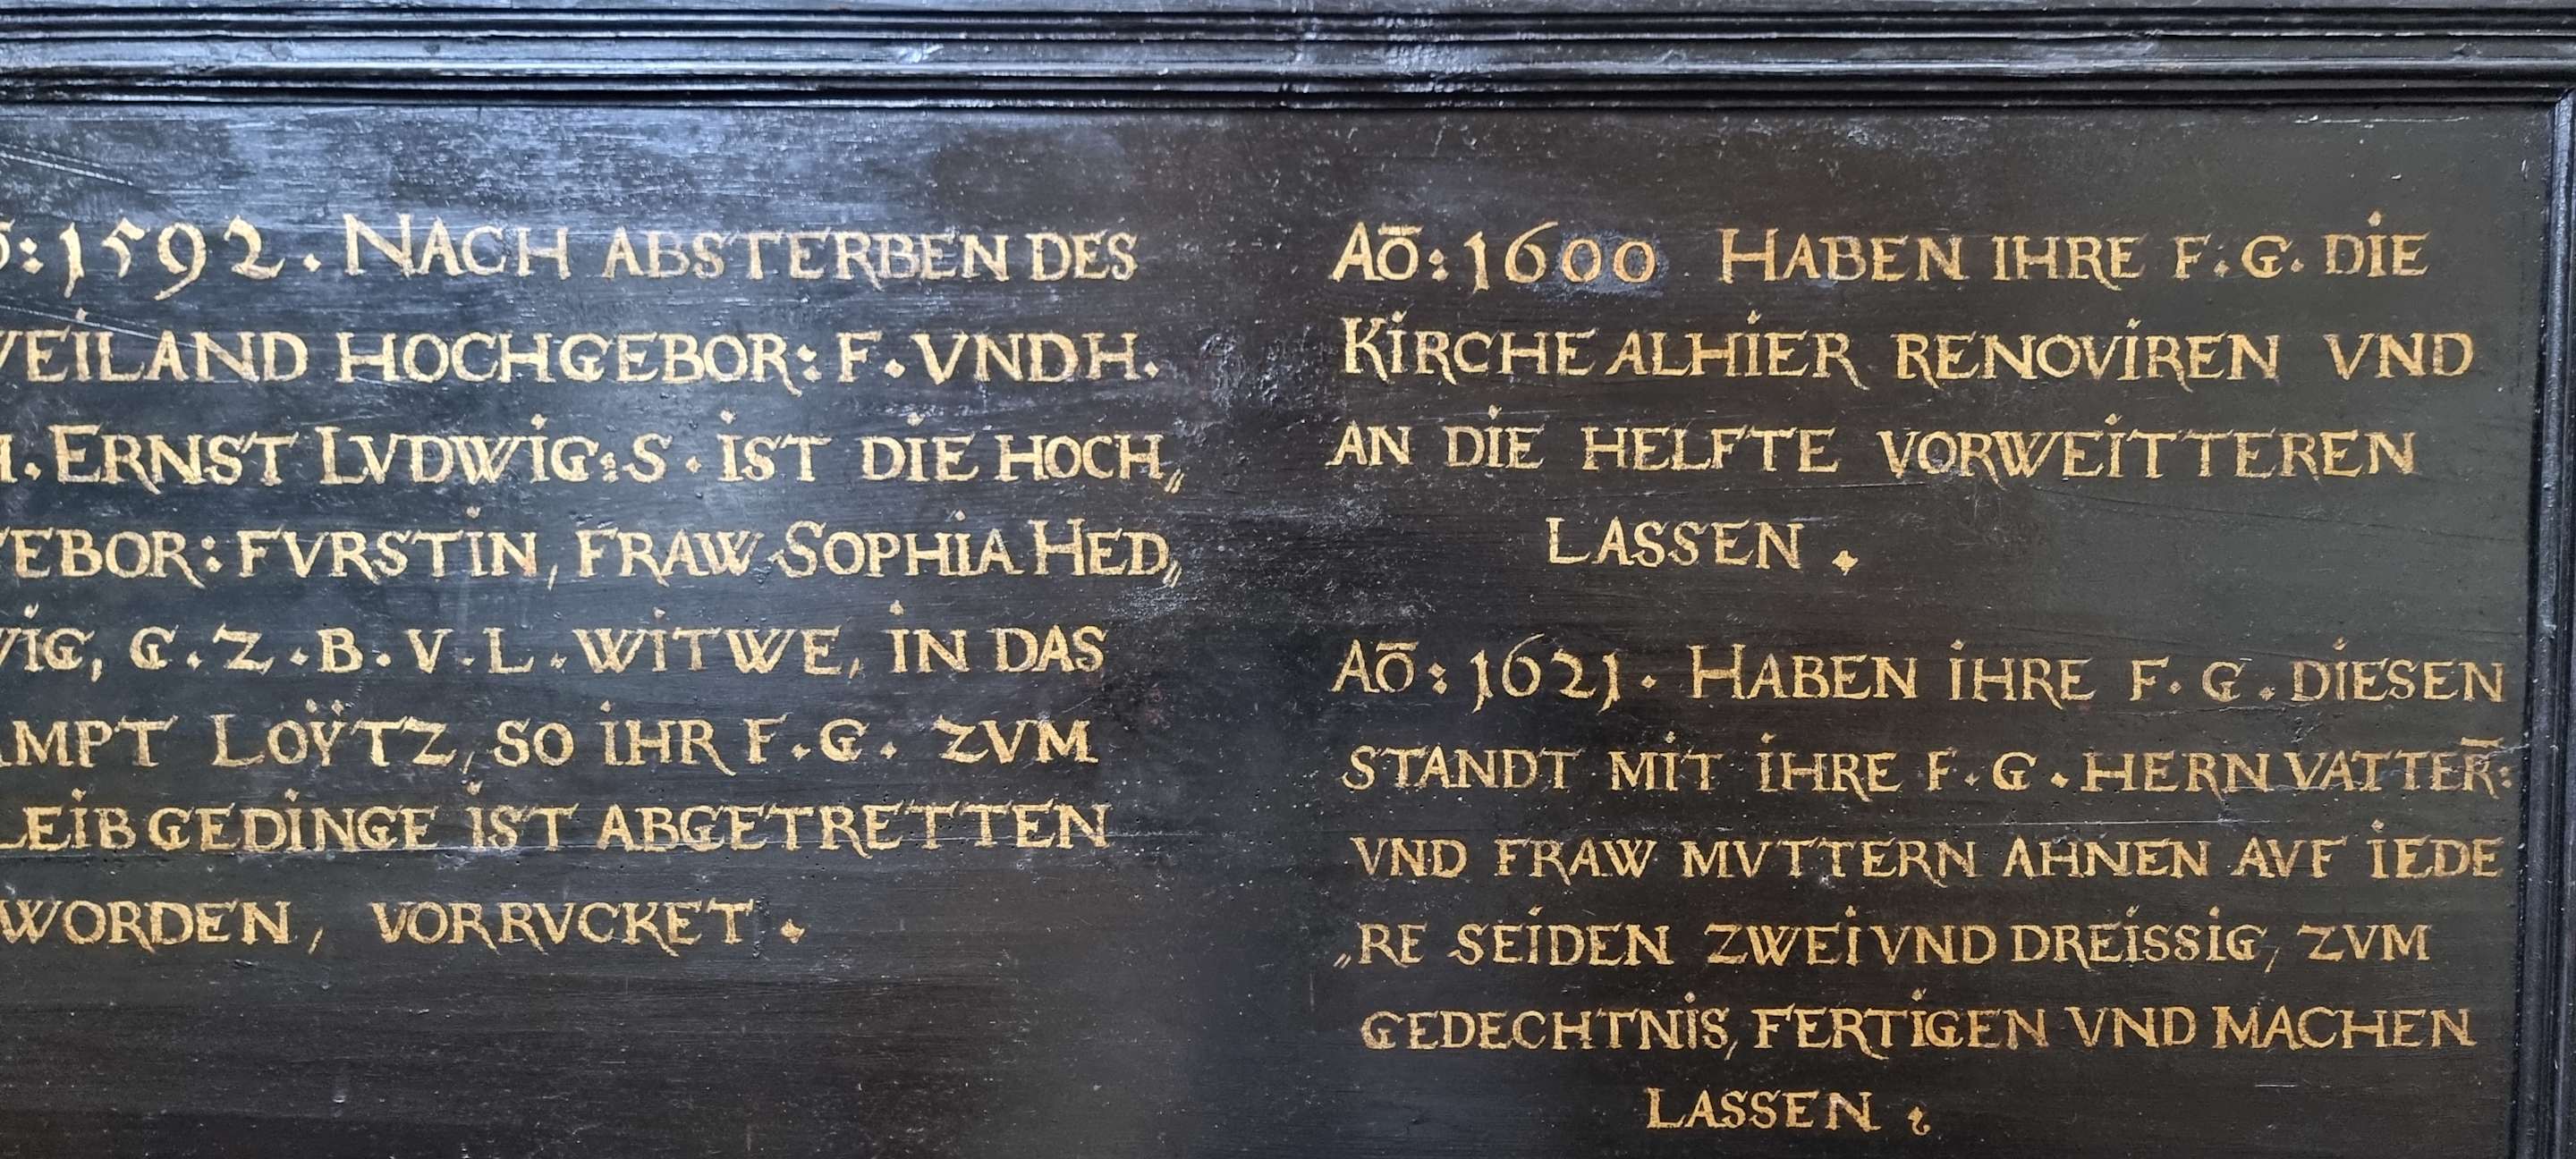 ō:1592. NACH ABSTERBEN DES
WEILAND HOCHGEBOR: F. VND H.
H. ERNST LVDWIG: S. IST DIE HOCH„
GEBOR: FVRSTIN, FRAW SOPHIA HED„
WIG, G. Z. B. V. L. WITWE, IN DAS
AMPT LOŸTZ, SO IHR F. G. ZVM
LEIBGEDINGE IST ABGETRETTEN
WORDEN, VORRVCKET.
Aō: 1600 HABEN IHRE F. G. DIE
KIRCHE ALHIER RENOVIREN VND
AN DIE HELFTE VORWEITTEREN
LASSEN.
Aō: 1621. HABEN IHRE F. G. DIESEN
STANDT MIT IHRE F. G. HERN VATTER̄:
VND FRAW MVTTERN AHNEN AVF IEDE
„RE SEIDEN ZWEI VND DREISSIG, ZVM
GEDECHTNIS, FERTIGEN VND MACHEN
LASSEN.